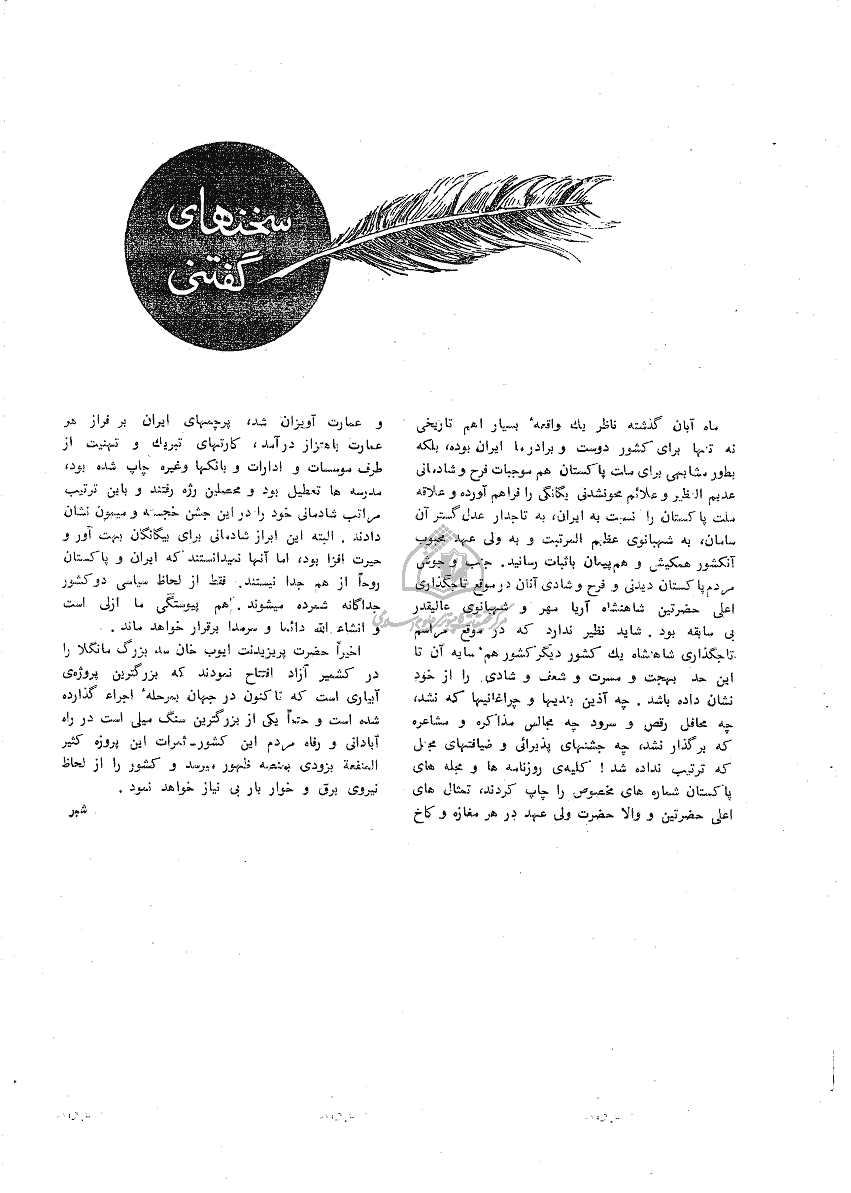 سخنهای
گفتنی
ماه آبان گذشته ناظر یك واقعهٔ بسیار اهم تاریخی
نه تنها برای كشور دوست و برادر ما ایران بوده، بلكه
بطور مشابهی برای ملت پاكستان هم موجبات فرح و شادمانی
عدیم النظیر و علائم محونشدنی یگانگی را فراهم آورده و علاقه
ملت پاكستان را نسبت به ایران، به تاجدار عدل گستر آن
سامان، به شهبانوی عظیم المرتبت و به ولی عهد محبوب
آنكشور همكیش و هم پیمان باثبات رسانید. جنب و جوش
مردم پاكستان دیدنی و فرح و شادی آنان در موقع تاجگذاری
اعلی حضرتین شاهنشاه آریا مهر و شهبانوی عالیقدر
بی سابقه بود. شاید نظیر ندارد كه در موقع مراسم
تاجگذاری شاهنشاه یك كشور دیگر كشور هم سایه آن تا
این حد بهجت و مسرت و شعف و شادی را از خود
نشان داده باشد. چه آذین بندیها و چراغانیها كه نشد،
چه محافل رقص و سرود چه مجالس مذاكره و مشاعره
كه برگذار نشد، چه جشنهای پذیرائی و ضیافتهای مجلل
كه ترتیب نداده شد! كلیه‌ی روزنامه ها و مجله های
پاكستان شماره های مخصوص را چاپ كردند، تمثال های
اعلی حضرتین و والا حضرت ولی عهد در هر مغازه و كاخ
و عمارت آویزان شد، پرچمهای ایران بر فراز هر
عمارت باهتزاز درآمد، كارتهای تبریك و تهنیت از
طرف موسسات و ادارات و بانكها وغیره چاپ شده بود،
مدرسه ها تعطیل بود و محصلین رژه رفتند و باین ترتیب
مراتب شادمانی خود را در این جشن خجسته و میمون نشان
دادند. البته این ابراز شادمانی برای بیگانگان بهت آور و
حیرت افزا بود، اما آنها نمیدانستند كه ایران و پاكستان
روحاً از هم جدا نیستند. فقط از لحاظ سیاسی دو كشور
جداگانه شمرده میشوند. هم پیوستگی ما ازلی است
و انشاء الله دائما و سرمدا برقرار خواهد ماند.
اخیراً حضرت پریزیدنت ایوب خان سد بزرگ مانگلا را
در كشمیر آزاد افتتاح نمودند كه بزرگترین پروژه‌ی
آبیاری است كه تاكنون در جهان بمرحلهٔ اجراء گذارده
شده است و حتماً یكی از بزرگترین سنگ میلی است در راه
آبادانی و رفاه مردم این كشور- ثمرات این پروژه كثیر
المنفعة بزودی بمنصه ظهور میرسد و كشور را از لحاظ
نیروی برق و خوار بار بی نیاز خواهد نمود.